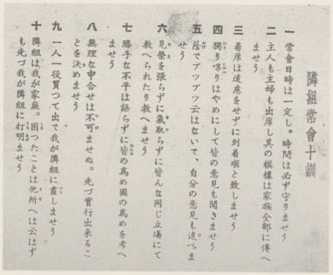 隣組常會十訓
一 常會日時は一定し。時間は必ず守りませう
二 主人も主婦も出席し其の模樣は家族全部に傳へ
ませう
三 着席は遠慮をせずに到着順と致しませう
四 獨り喋りはやめにして皆の意見も聞きませう
五 蔭でブツブツ云はないで、自分の意見も述べま
せう
六 見榮を張らずに氣取らずに皆んな同じ立場にて
教へられたり教へませう
七 勝手な不平は語らずに皆の爲め國の爲めを考へ
ませう
八 無理な申合せは不可ませぬ。先づ實行出來るこ
とを決めませう
九 一人一役買つて出て我が隣組に盡しませう
十 隣組は我が家庭。困つたことは他所へは云はず
も先づ我が隣組に打明ませう